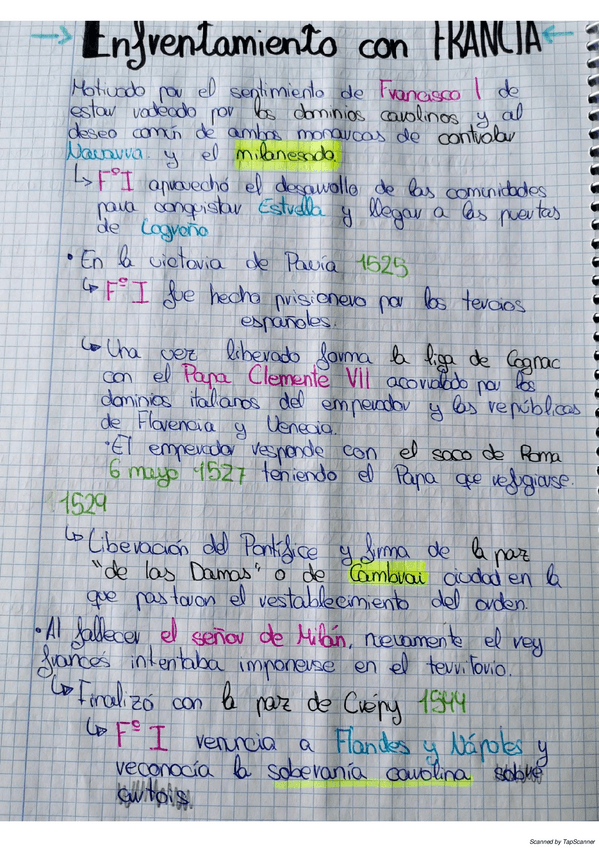 Enfrentamiento con FRANCIA
Motivado por el sentimiento de Francisco I de
estar rodeado por los dominios carolinos y al
deseo común de ambos monarcas de controlar
Navarra y el milanesado.
↳ Fº I aprovechó el desarrollo de las comunidades
para conquistar Estrella y llegar a las puertas
de Logroño
• En la victoria de Pavía 1525
↳ Fº I fue hecho prisionero por los tercios
españoles.
↳ Una vez liberado forma la liga de Cognac
con el Papa Clemente VII acorralado por los
dominios italianos del emperador y las repúblicas
de Florencia y Venecia.
• El emperador responde con el saco de Roma
6 mayo 1527 teniendo el Papa que refugiarse.
1529
↳ Liberación del Pontífice y firma de la paz
"de las Damas" o de Cambrai ciudad en la
que pactaron el restablecimiento del orden.
• Al fallecer el señor de Milán, nuevamente el rey
francés intentaba imponerse en el territorio.
↳ Finalizó con la paz de Crépy 1544
↳ Fº I renuncia a Flandes y Nápoles y
reconocía la soberanía carolina sobre
Scanned by TapScanner